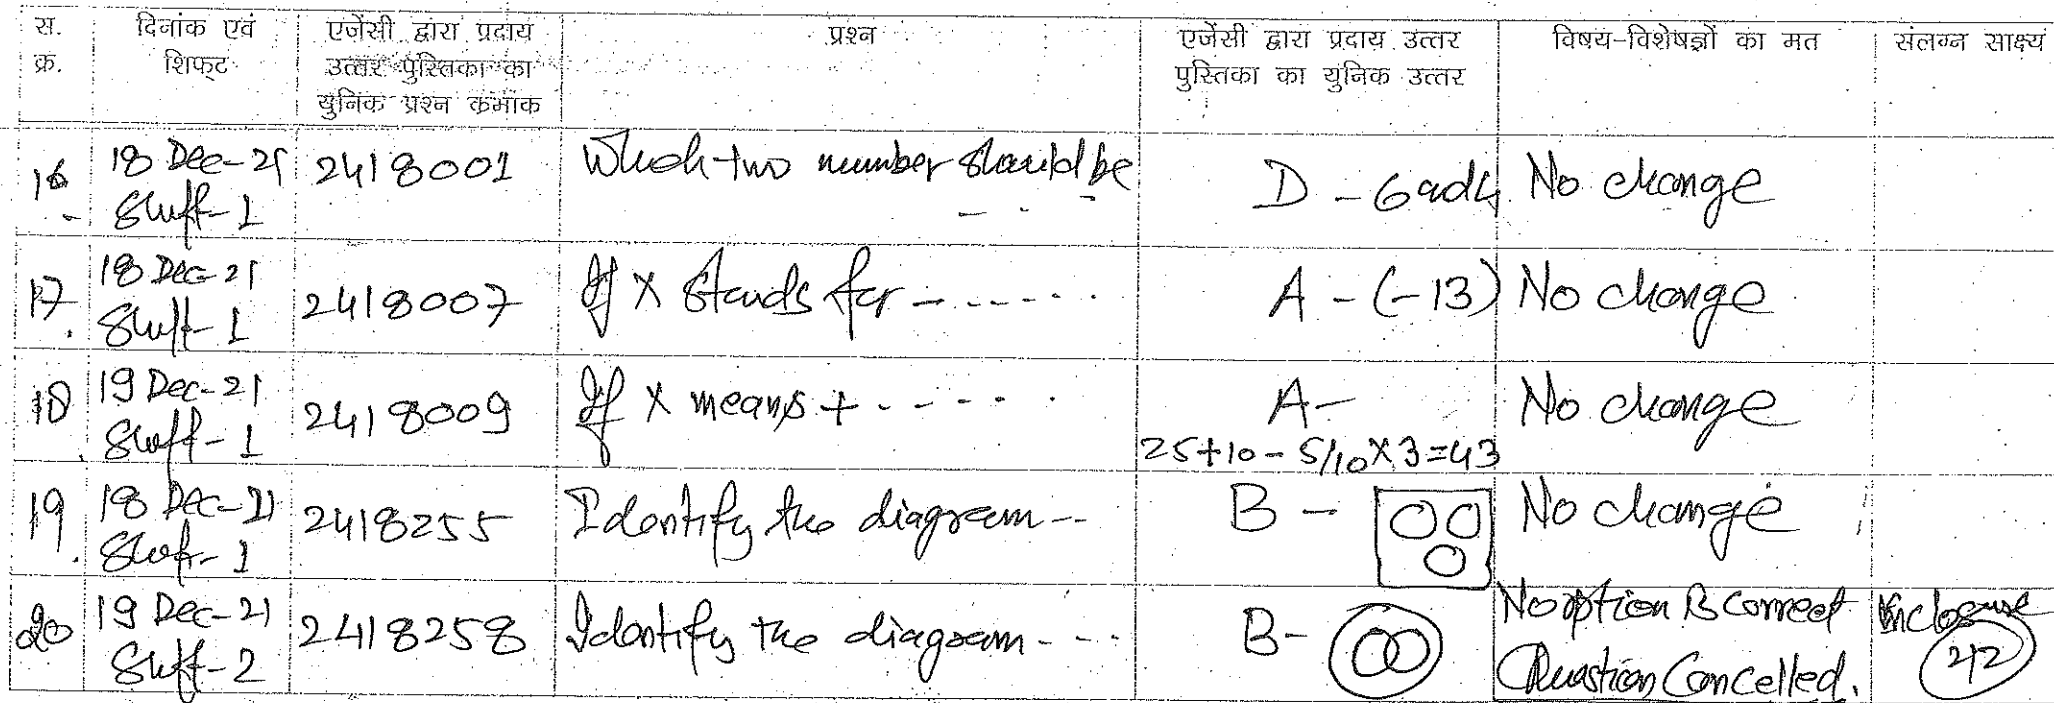 स. क्र. दिनांक एवं शिफ्ट एजेंसी द्वारा प्रदाय उत्तर पुस्तिका का युनिक प्रश्न कमांक प्रश्न एजेंसी द्वारा प्रदाय उत्तर पुस्तिका का युनिक उत्तर विषय-विशेषज्ञों का मत संलग्न साक्ष्य
16 18 Dec-21 Shift-1 2418001 Which two number should be - - - D - 6 and 4 No change
17. 18 Dec-21 Shift-1 2418007 If X stands for ------ A - (-13) No change
18. 19 Dec-21 Shift-1 2418009 If X means + ----- A- 25+10-5/10X3=43 No change
19. 18 Dec-21 Shift-1 2418255 Identify the diagram -- B - No change
20 19 Dec-21 Shift-2 2418258 Identify the diagram --- B- No option is correct Question Cancelled. Enclosure 212